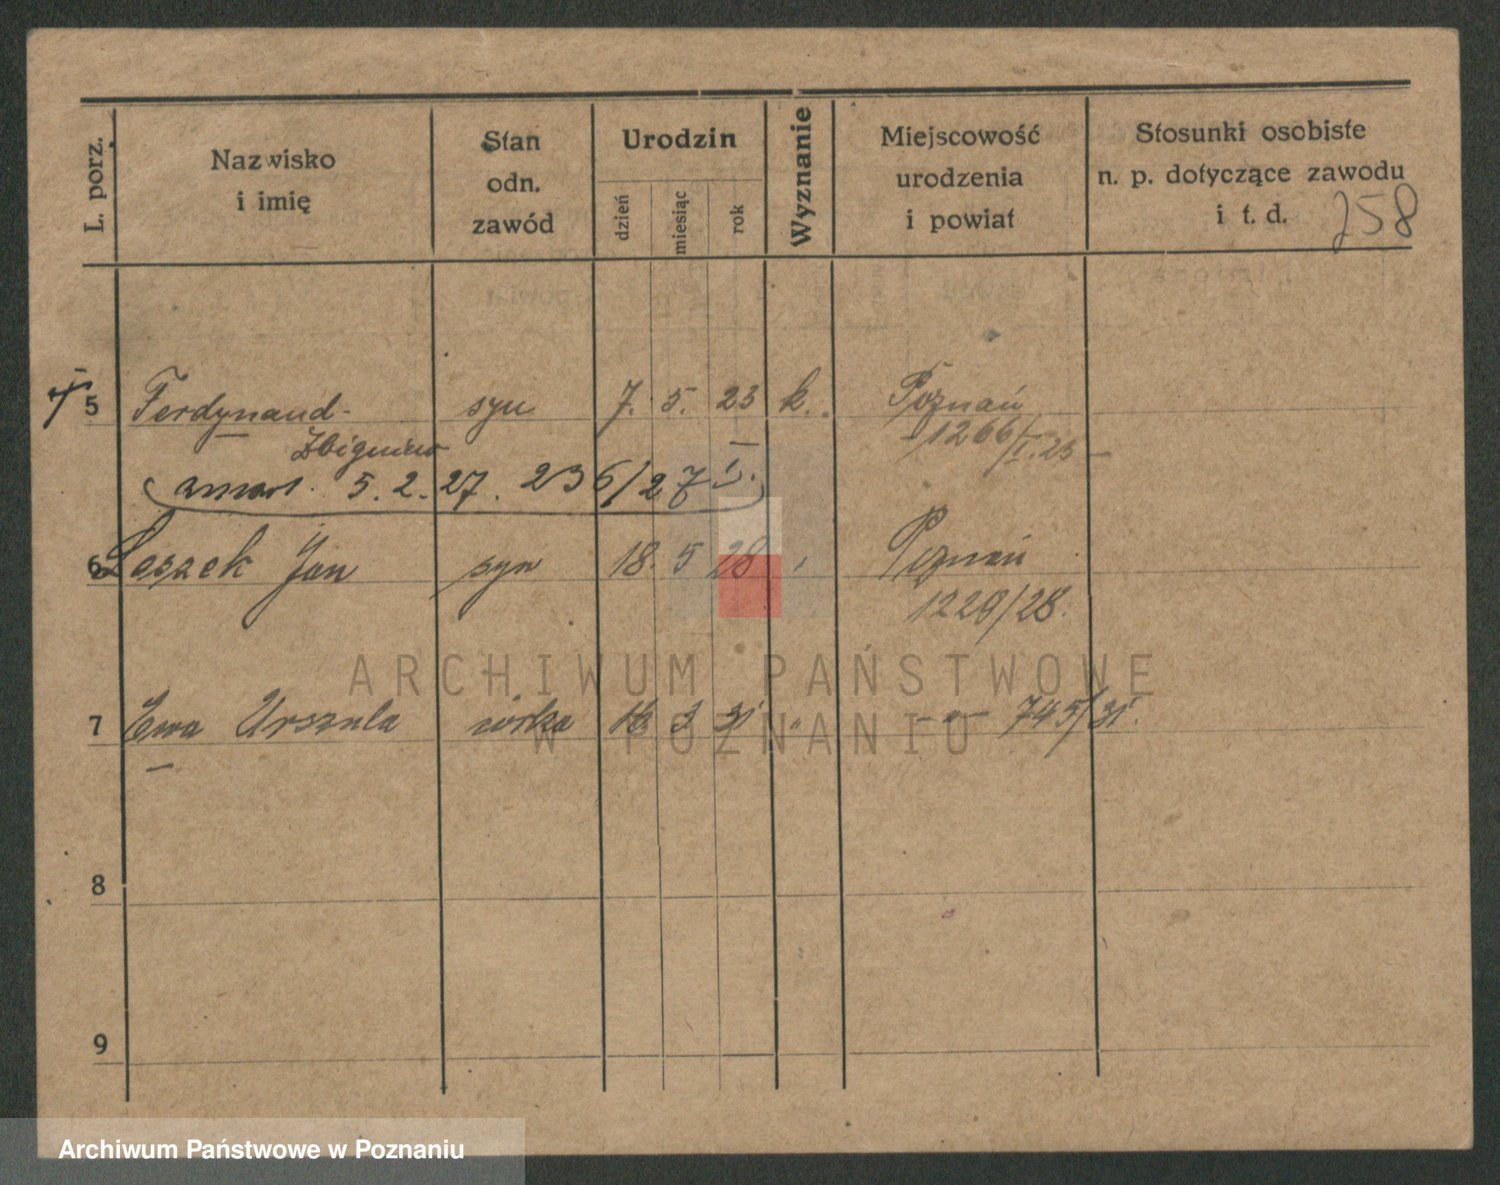 L. porz.
Nazwisko
i imię
Stan
odn.
zawód
Urodzin
dzień
miesiąc
rok
Wyznanie
Miejscowość
urodzenia
i powiat
Stosunki osobiste
n. p. dotyczące zawodu
i t. d.
258
5 Ferdynand- syn 7. 5. 23 k. Poznań
Zbigniew 1266/I.23
5.2.27. 236/27
6 Leszek Jan syn 18. 5 28 Poznań
1229/28.
7 Ewa Urszula córka 3 31 " - " - 745/31.
8
9
ARCHIWUM PAŃSTWOWE
W POZNANIU
Archiwum Państwowe w Poznaniu